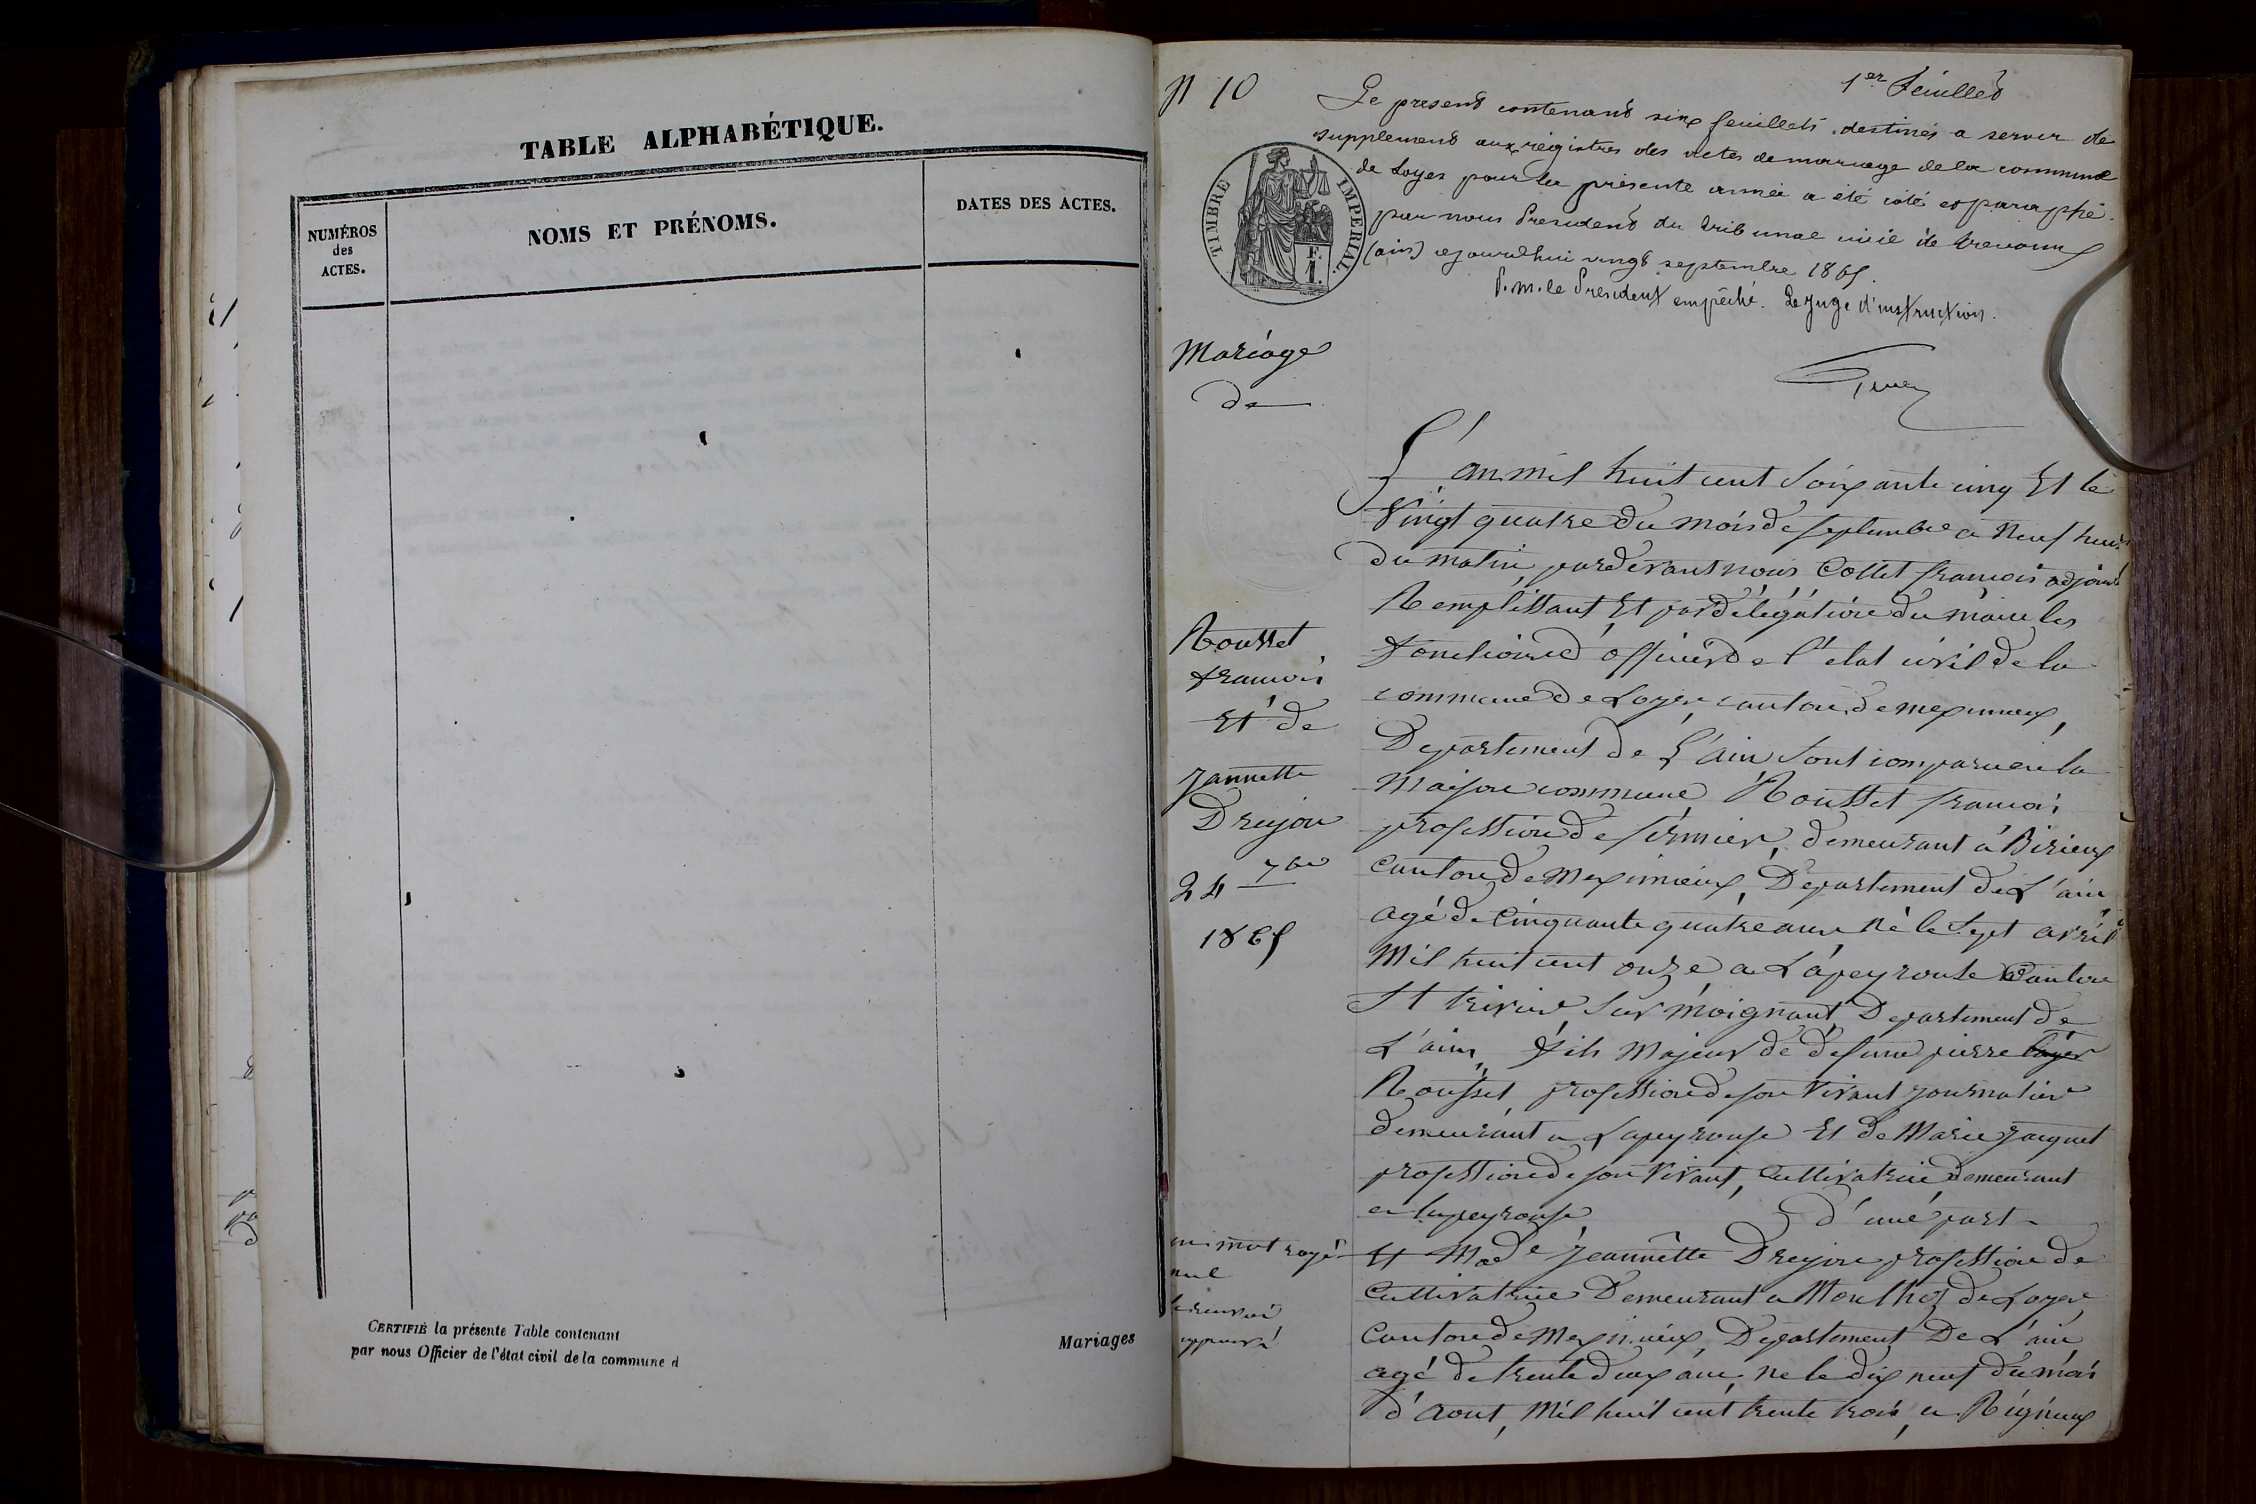 TABLE ALPHABÉTIQUE.
NUMÉROS
des
ACTES.
NOMS ET PRÉNOMS.
DATES DES ACTES.
CERTIFIÉ la présente Table contenant
par nous Officier de l'état civil de la commune d
Mariages
N 10
1er feuillet
Le present contenant six feuillets destinés a servir de
supplement aux régistres des actes de mariage de la commune
de Loyes pour la présente année a été coté et paraphé
par nous President du tribunal civil de trevoux
(ain) cejourd'hui vingt septembre 1865.
P. m. le President empêché. Le Juge d'instruction.
TIMBRE IMPERIAL.
1 F.
Mariage
de
Rousset
francois
Et de
Jannette
Drujon
24 7bre
1865
L'an mil huit cent soixante cinq Et le
Vingt quatre du mois de septembre a Neuf heures
du matin, pardevant nous Collet francois adjoint
Remplissant Et par délégation du maire les
fonctions d'officier de l'état civil de la
commune de Loyes, canton de meximieux,
Departement de L'ain sont comparu en la
maison commune Rousset francois
profession de fermier, demeurant a Birieux
canton de Meximieux, Departement de L'ain
agé de Cinquante quatre ans né le Sept avril
Mil huit cent onze, a Lapeyrouse Canton
St trivier Sur Moignant Departement de
L'ain, fils Majeur de defunt pierre
Rousset profession de son Vivant journalier
demeurant a Lapeyrouse Et de Marie Jacquet
profession de son Vivant, Cultivatrice, demeurant
a Lapeyrouse d'une part
Et Made Jeannette Drujon profession de
Cultivatrice Demeurant a Monthoz de Loyes
Canton de Meximieux, Département De L'ain
agé de trente deux ans, ne le dix neuf du mois
d'Aout, Mil huit cent trente trois, a Rignieux
un mot rayé
nul
le renvoi
approuvé